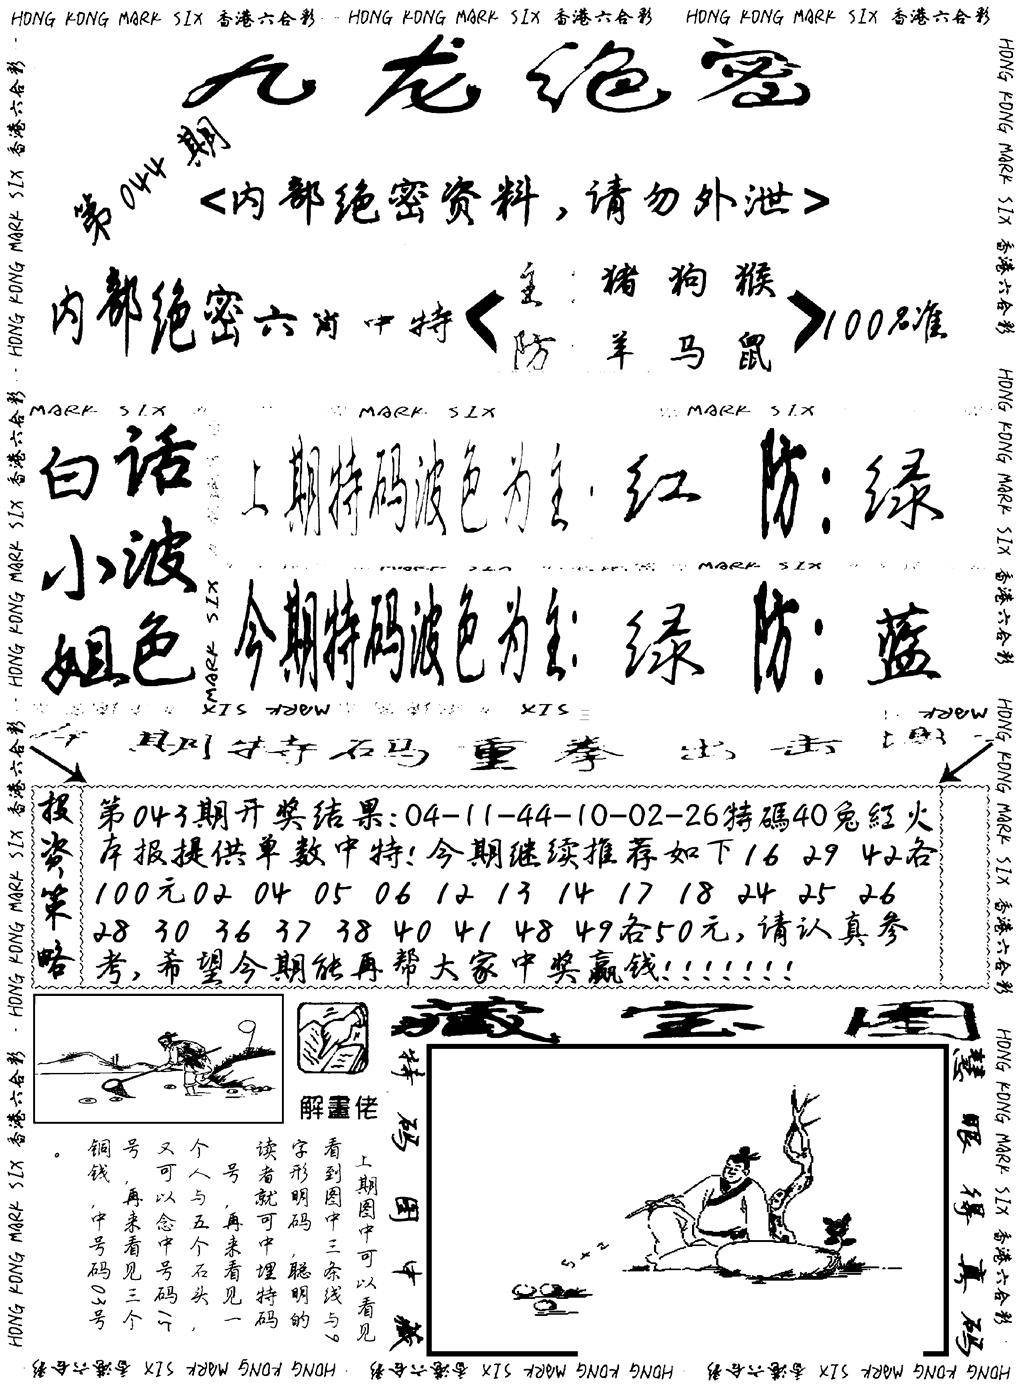 HONG KONG MARK SIX 香港六合彩 HONG KONG MARK SIX 香港六合彩 HONG KONG MARK SIX 香港六合彩
九龙绝密
第044期
<内部绝密资料,请勿外泄>
内部绝密六肖中特
主:猪狗猴
防:羊马鼠
100%准
MARK SIX MARK SIX MARK SIX
白话
小波
姐色
上期特码波色为主:红 防:绿
MARK SIX MARK SIX
今期特码波色为主:绿 防:蓝
MARK SIX
MARK SIX SIX MARK
今期特码重拳出击
投资策略
第043期开奖结果:04-11-44-10-02-26特碼40兔紅火
本报提供单数中特!今期继续推荐如下16 29 42各
100元02 04 05 06 12 13 14 17 18 24 25 26
28 30 36 37 38 40 41 48 49各50元,请认真参
考,希望今期能再帮大家中奖赢钱!!!!!!!
解畫佬
上期图中可以看见
看到图中三条线与9
字形明码,聪明的
读者就可中埋特码
号,再来看见一
个人与五个石头,
又可以念中号码15
号,再来看见三个
铜钱,中号码03号
。
藏宝图
特码图中藏
慧眼得真码
5×2
HONG KONG MARK SIX 香港六合彩 HONG KONG MARK SIX 香港六合彩 HONG KONG MARK SIX 香港六合彩